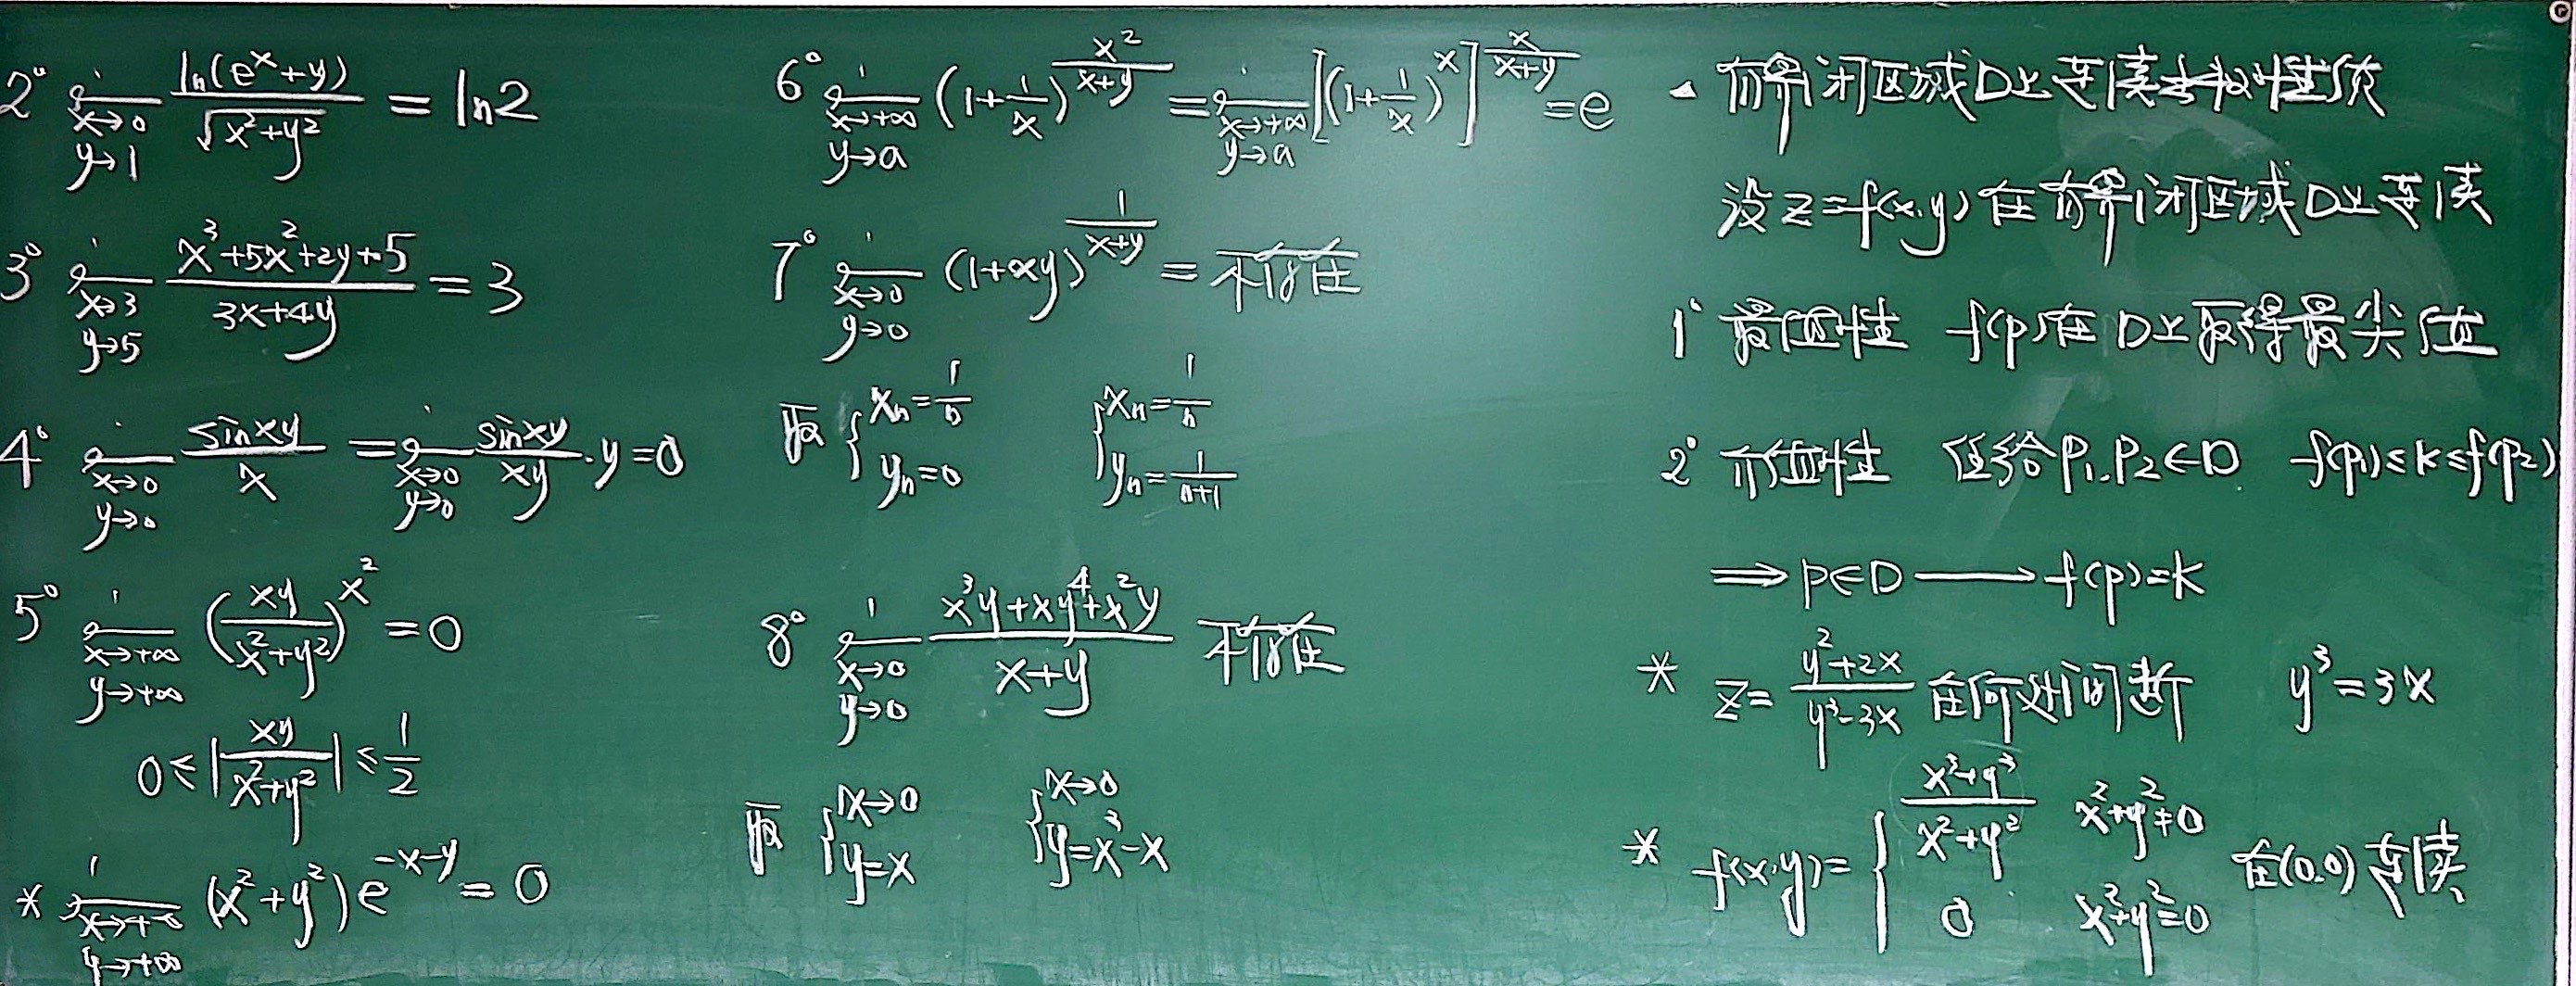 2° lim_{x→0, y→1} ln(e^x+y)/√(x²+y²) = ln2
3° lim_{x→3, y→5} (x³+5x²+2y+5)/(3x+4y) = 3
4° lim_{x→0, y→0} sinxy/x = lim_{x→0, y→0} sinxy/xy · y = 0
5° lim_{x→+∞, y→+∞} (xy/(x²+y²))^{x²} = 0
0 ≤ |xy/(x²+y²)| ≤ 1/2
* lim_{x→+∞, y→+∞} (x²+y²)e^{-x-y} = 0
6° lim_{x→+∞, y→a} (1+1/x)^{x²/(x+y)} = lim_{x→+∞, y→a} [(1+1/x)^x]^{x/(x+y)} = e
7° lim_{x→0, y→0} (1+xy)^{1/(x+y)} = 不存在
取 { x_n=1/n, y_n=0 { x_n=1/n, y_n=1/(n+1)
8° lim_{x→0, y→0} (x³y+xy⁴+x²y)/(x+y) 不存在
取 { x→0, y=x { x→0, y=x³-x
有界闭区域D上连续函数性质
设z=f(x,y)在有界闭区域D上连续
1° 最值性 f(p)在D上取得最大小值
2° 介值性 任给P₁,P₂∈D f(p₁)≤k≤f(p₂)
⟹ p∈D ⟶ f(p)=k
* z=(y²+2x)/(y³-3x) 在何处间断 y³=3x
* f(x,y)= { (x³+y³)/(x²+y²) x²+y²≠0, 0 x²+y²=0 在(0,0)连续